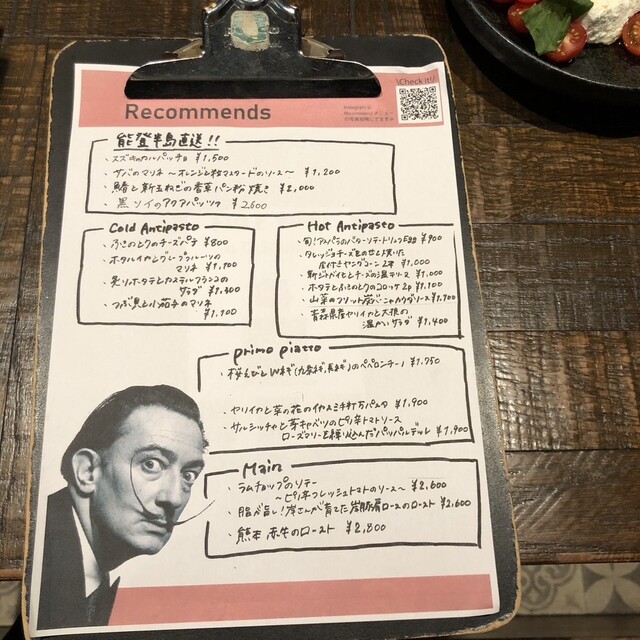 \Check it!/
Recommends
Instagramに
Recommendメニュー
の写真掲載してます♪
能登半島直送!!
・スズキのカルパッチョ ¥1,500
・サバのマリネ 〜オレンジと粒マスタードのソース〜 ¥1,200
・鰆と新玉ねぎの香草パン粉焼き ¥2,000
・黒ソイのアクアパッツァ ¥2600
Cold Antipasto
・ふきのとうのチーズパテ ¥800
・ホタルイカとグレープフルーツの
マリネ ¥1,100
・炙りホタテとカステルフランコの
サラダ ¥1,300
・つぶ貝と小茄子のマリネ
¥1,100
Hot Antipasto
・旬!アスパラのバターソテートリュフEgg ¥900
・タレッジョチーズをのせて焼いた
皮付きヤングコーン 2本 ¥1,000
・新ジャガイモとチーズの温テリーヌ ¥1,000
・ホタテとふきのとうのコロッケ 2p ¥1,100
・山菜のフリット 葉バーニャカウダソース ¥1,900
・青森県産ヤリイカと大根の
温かいサラダ ¥1,400
primo piatto
・桜えびとWネギ(九条ネギ,長ネギ)のペペロンチーノ ¥1,750
・ヤリイカと菜の花のイカスミ手打ちパスタ ¥1,900
・サルシッチャと芽キャベツのピリ辛トマトソース
ローズマリーを練り込んだパッパルデッレ ¥1,900
Main
・ラムチョップのソテー
〜ピリ辛フレッシュトマトのソース〜 ¥2,600
・脂が旨し!岸さんが育てた炭豚肩ロースのロースト ¥2,600
・熊本赤牛のロースト ¥2,800